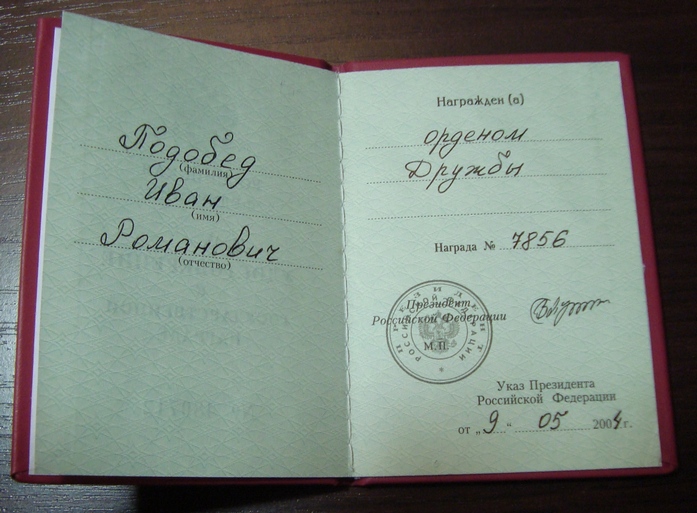 Подобед
(фамилия)
Иван
(имя)
Романович
(отчество)
Награжден (а)
орденом
Дружбы
Награда № 7856
Президент
Российской Федерации
М.П.
ПРЕЗИДЕНТ
РОССИЙСКОЙ ФЕДЕРАЦИИ
Указ Президента
Российской Федерации
от „9“ 05 2004 г.